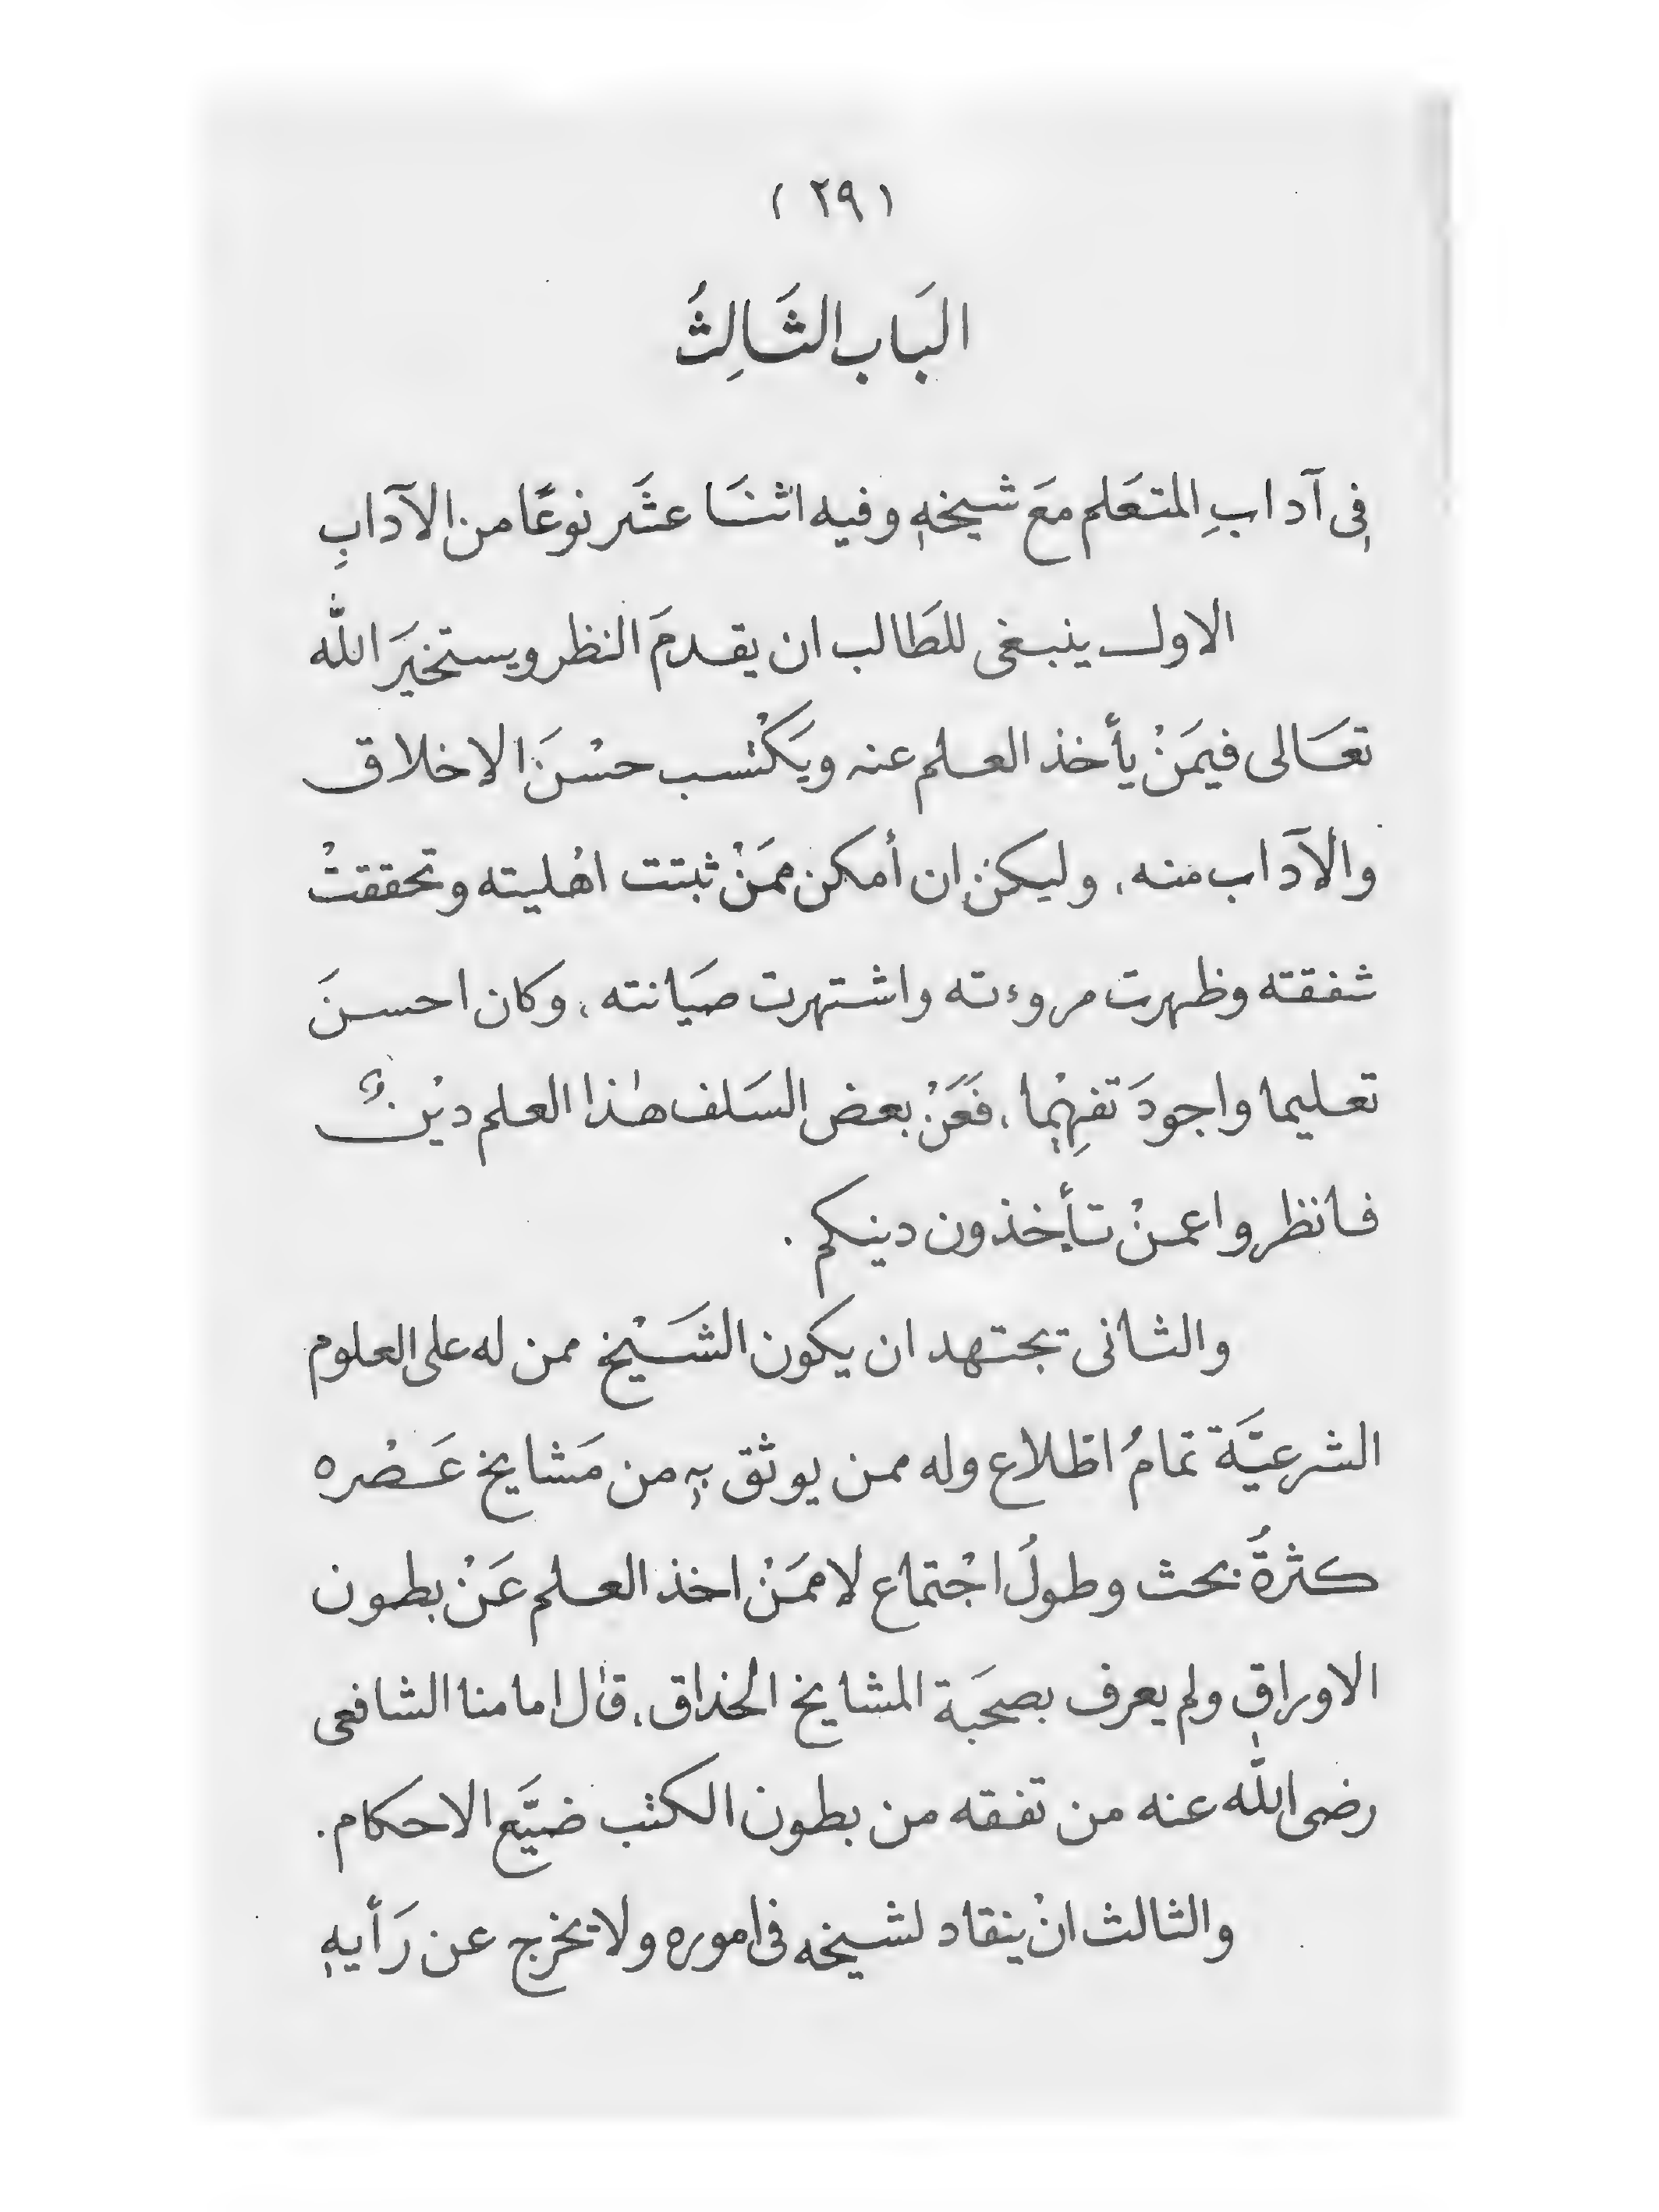 ( ٢٩ )
البَاب الثَالِثُ
فِى آدابِ المتعَلم معَ شيخهِ وفيه اثنَا عشَر نوعًا من الآدابِ
الاول ينبغى للطَالب ان يقدمَ النظر ويستخيرَ اللّٰه
تعَالى فيمَنْ يأخذ العلم عنه ويَكْتسب حسْنَ الاخلاق
والآداب منه، وليكنْ إن أمكن ممَنْ ثبتت اهْليته وتحققتْ
شفقته وظهرت مروءته واشتهرت صيَانته، وكان احسنَ
تعليما واجودَ تفهِيْما، فَعَنْ بعض السَلف هٰذا العلم ديْنٌ
فانظروا عمنْ تأخذون دينكم .
والثانى تجتهد ان يكون الشَيْخ ممن له على العلوم
الشرعيَّة تمامُ اطّلاع وله ممن يوثق بِهِ من مَشايخ عَصْره
كثرةُ بحث وطولُ اجْتماع لا ممَنْ اخذ العلم عَنْ بطون
الاوراقِ ولم يعرف بصحَبة المشايخ الُحذاق، قٰال امامنا الشافعى
رضى اللّٰه عنه من تفقه من بطون الكتب ضيَّع الاحكام .
والثالث انْ ينقاد لشيخه فى اموره ولا يخرج عن رَأيهِ